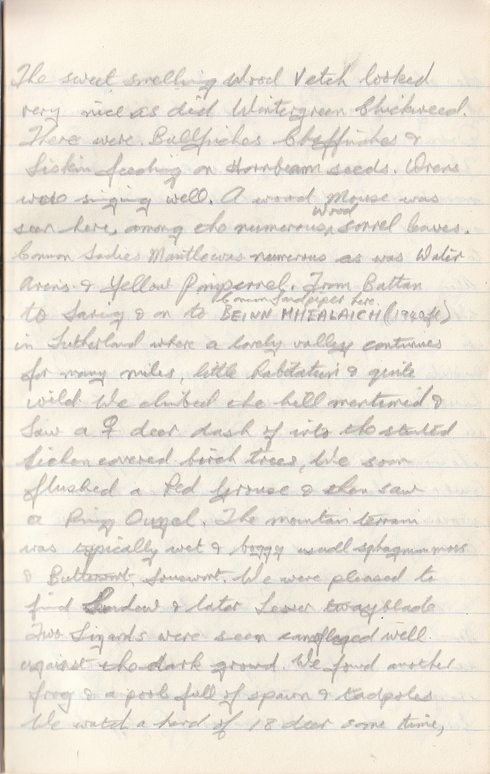 The sweet smelling Wood Vetch looked
very nice as did Wintergreen Chickweed.
There were Bullfiches Chaffiches &
Siskin feeding on Hornbeam seeds. Wrens
were singing well. A wood Mouse was
Wood
seen here, among the numerous, sorrel leaves.
Common Ladies Mantle was numerous as was Water
Avens & Yellow Pimpernel. From Battan
Common Sandpiper here.
to Lairg & on to BEINN MHEALAICH (1940ft)
in Sutherland where a lovely valley continues
for many miles, little habitation & quite
wild. We climbed the hill mentioned &
saw a ♀ deer dash of into the stunted
lichen covered birch trees, We soon
flushed a Red Grouse & then saw
a Ring Ouzel. The mountain terrain
was typically wet & boggy usual sphagnum moss
& Butterwort. We were pleased to
find Sundew & later Lesser twayblade
Two Lizards were seen camofleged well
against the dark ground We found another
frog & a pool full of spawn & tadpoles
We watch a herd of 18 deer some time,